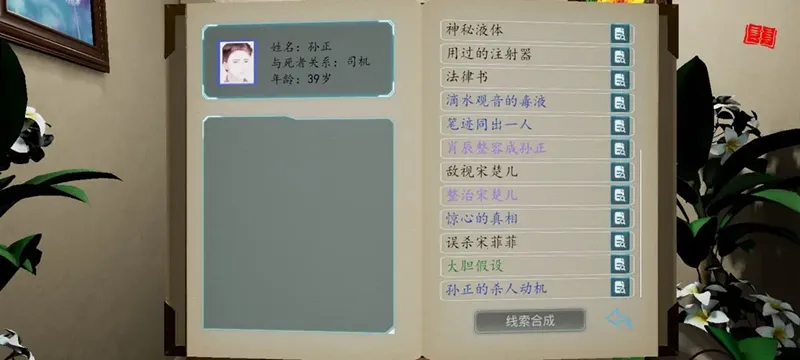 姓名：孙正
与死者关系：司机
年龄：39岁
神秘液体
用过的注射器
法律书
滴水观音的毒液
笔迹同出一人
肖辰整容成孙正
敌视宋楚儿
整治宋楚儿
惊心的真相
误杀宋菲菲
大胆假设
孙正的杀人动机
线索合成